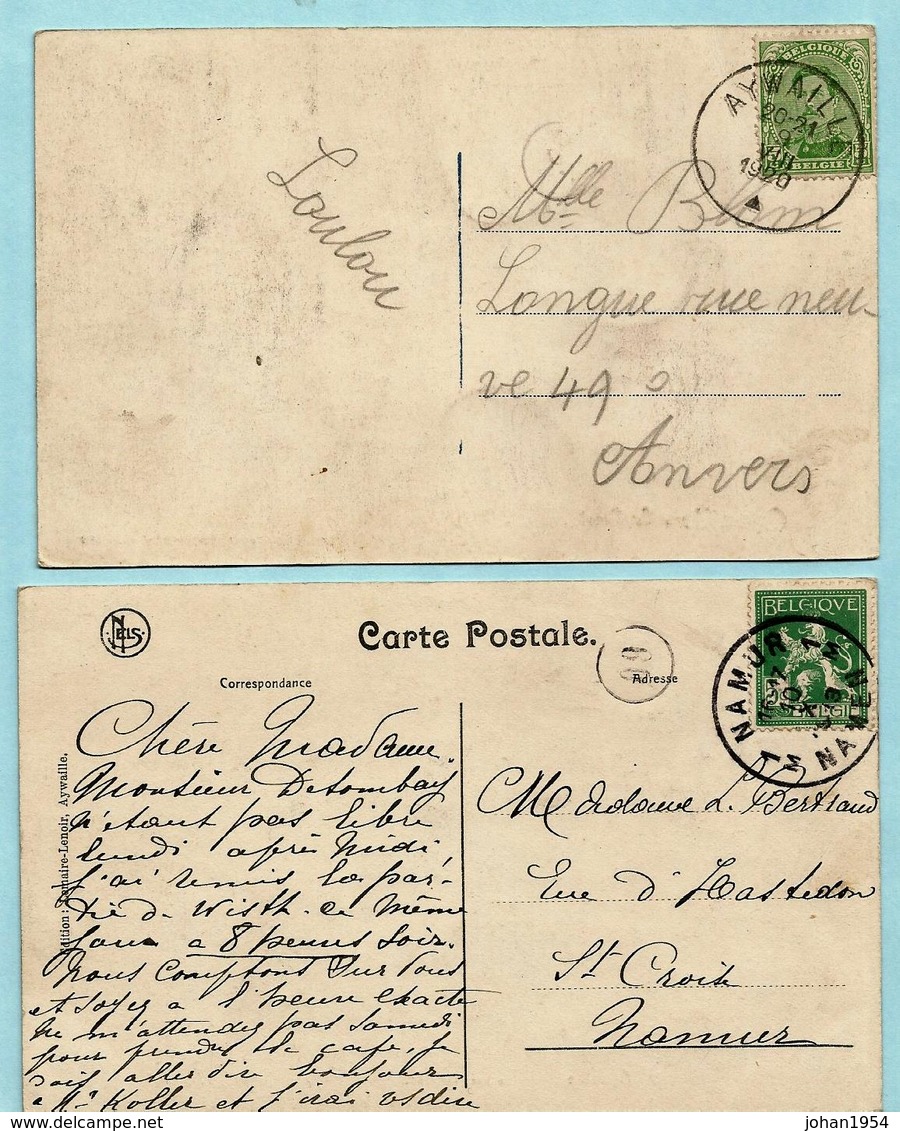 BELGIQUE
AYWAILLE
20-21
VIII
1920
BELGIË
Loulou
Mlle Blom
Longue rue neu-
ve 49
Anvers
NELS
Carte Postale.
Correspondance
Adresse
BELGIQVE
BELGIË
NAMUR
NAMEN
Édition: Lemaire-Lenoir, Aywaille.
Chère Madame.
Monsieur Detombay
n'étant pas libre
lundi après midi,
j'ai remis la par-
tie d. Wisth. le même
jour à 8 heures soir.
nous comptons sur vous
et soyez a l'heure exacte
ne m'attendez pas samedi
pour prendre le café, je
dois aller dire bonjour
a Mr Koller et j'irai
Madame L. Bertrand
Rue d'Hastedon
St Croix
Namur
johan1954